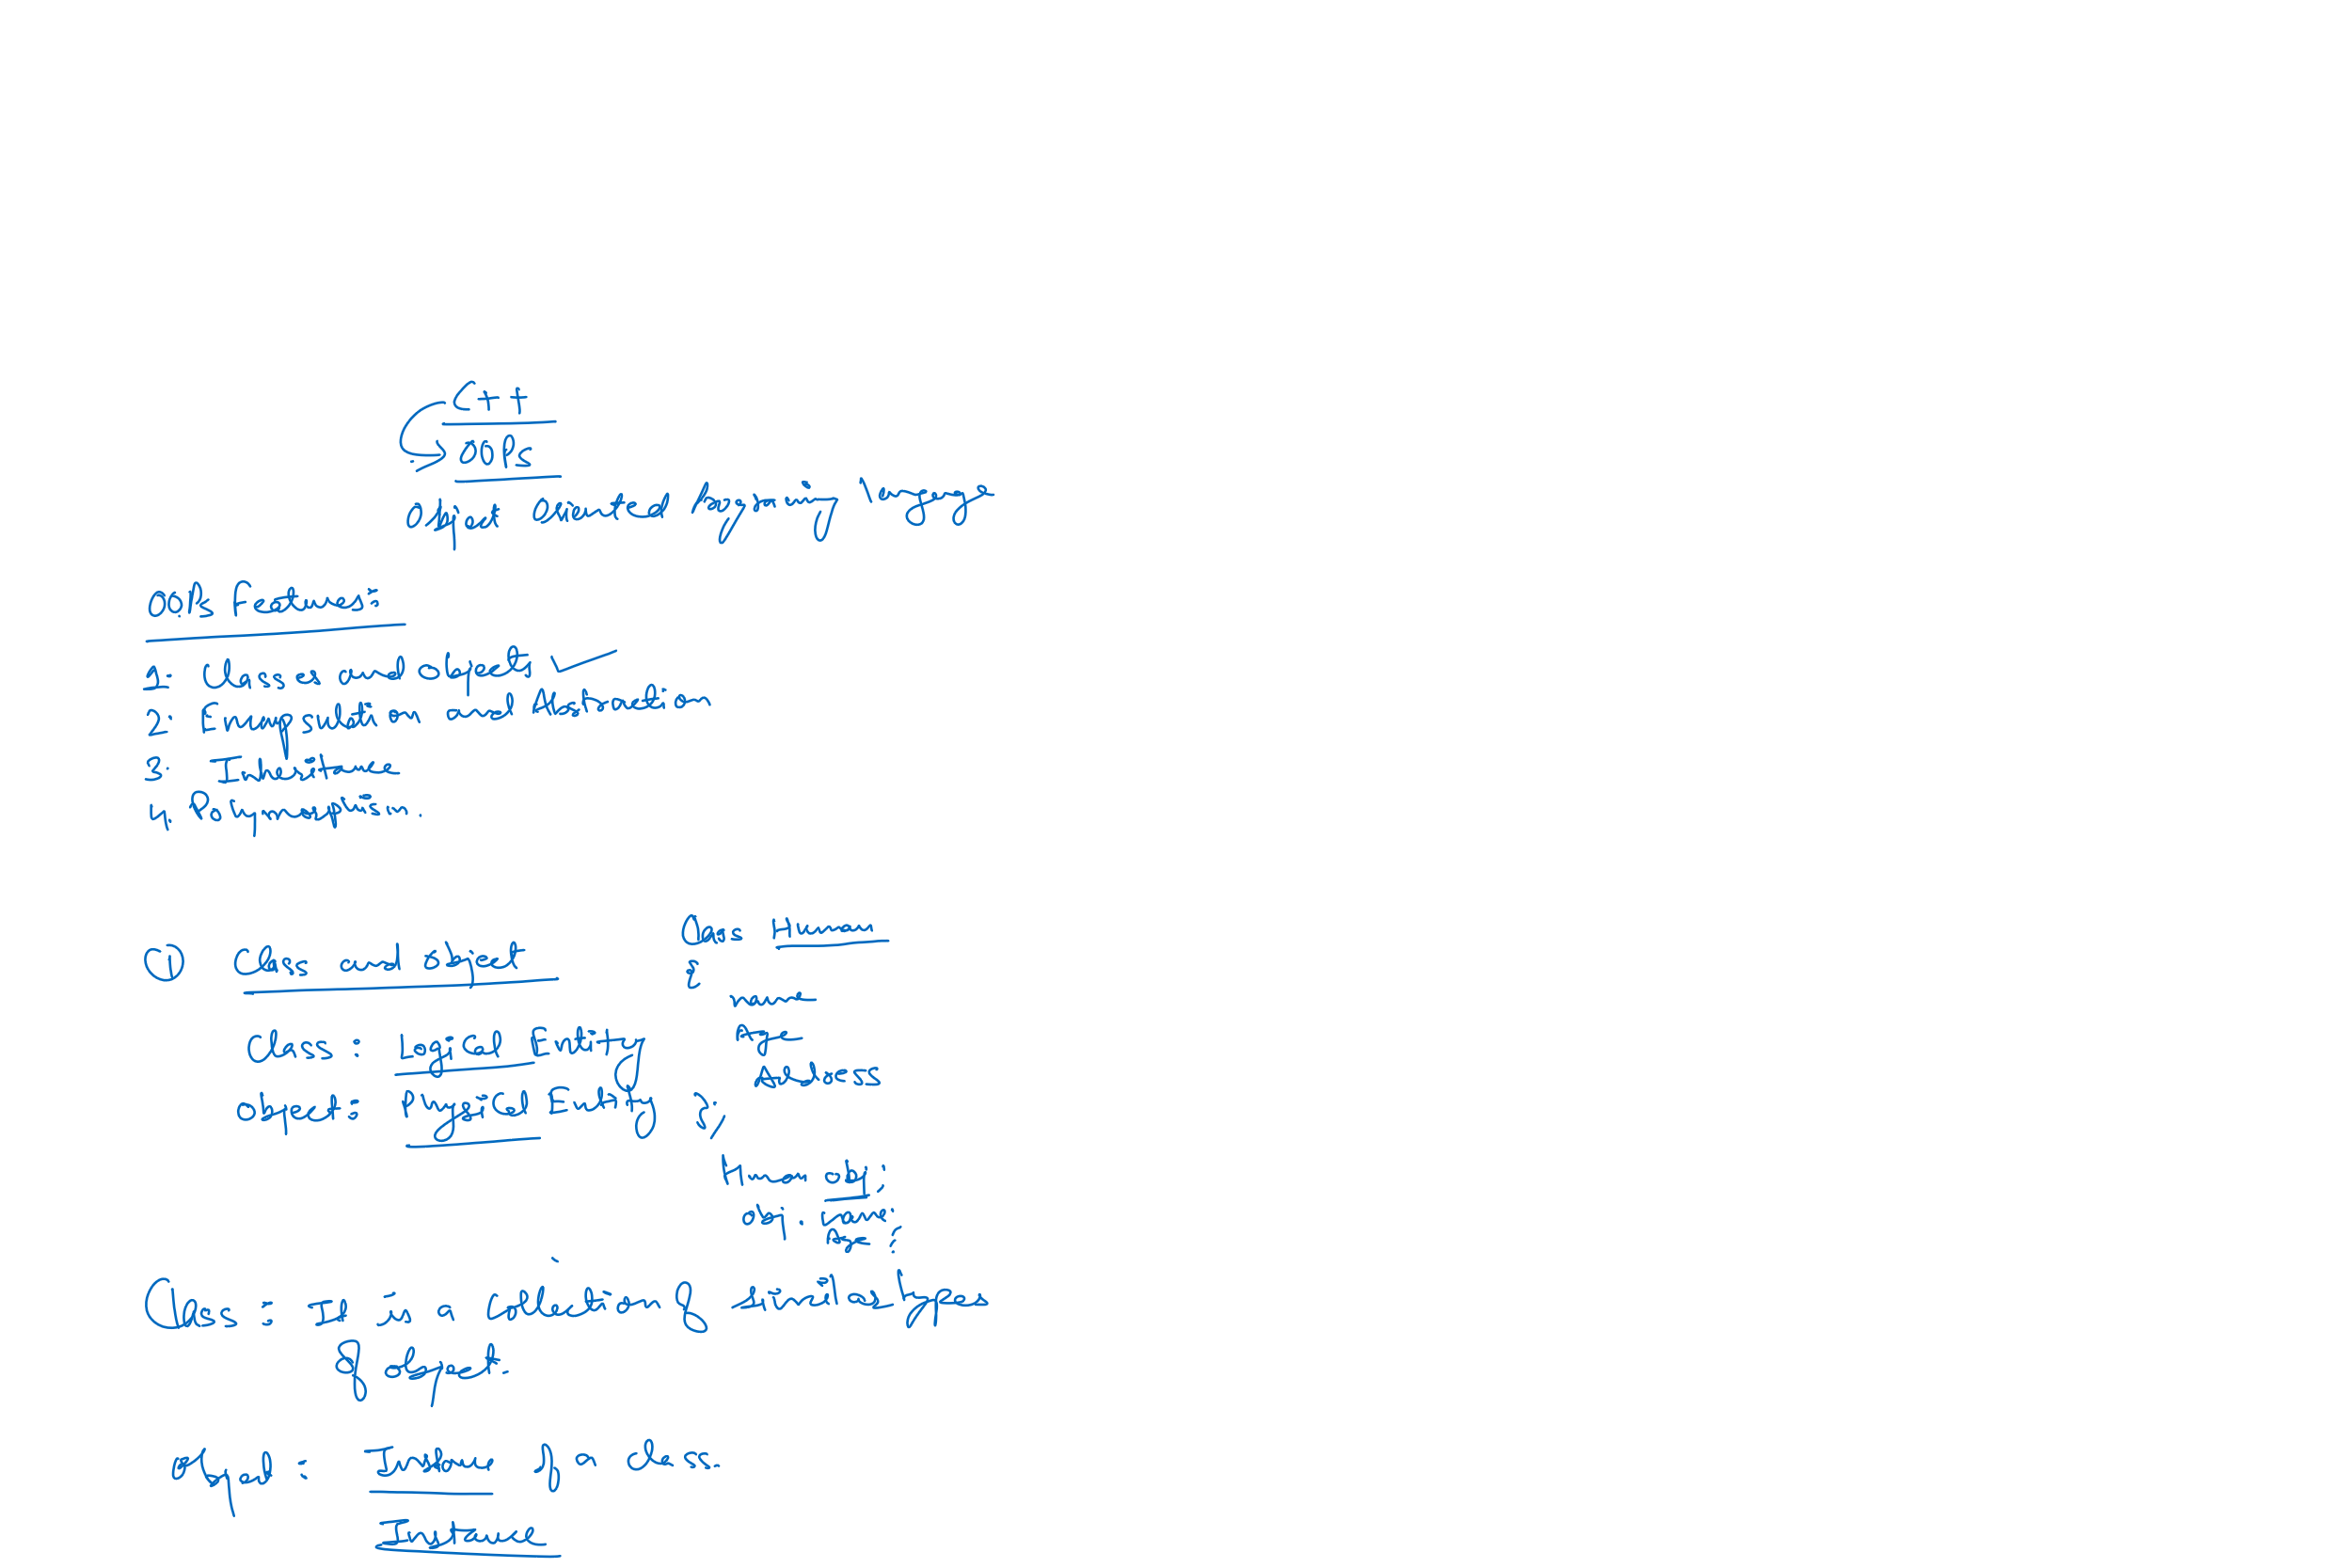 C++
OOPs
Object Oriented Programing language
OOPs Features:
1: Classes and objects
2: Encapsulation and Abstraction
3. Inheritance
4. Polymorphism.
① Class and object
Class: Logical Entity
object: Physical Entity
Class Human
{
name
Age
Address
};
Human obj;
obj. name;
Age;
Class: It is a collection of similar types
of object.
Object: Instance of a class.
Instance